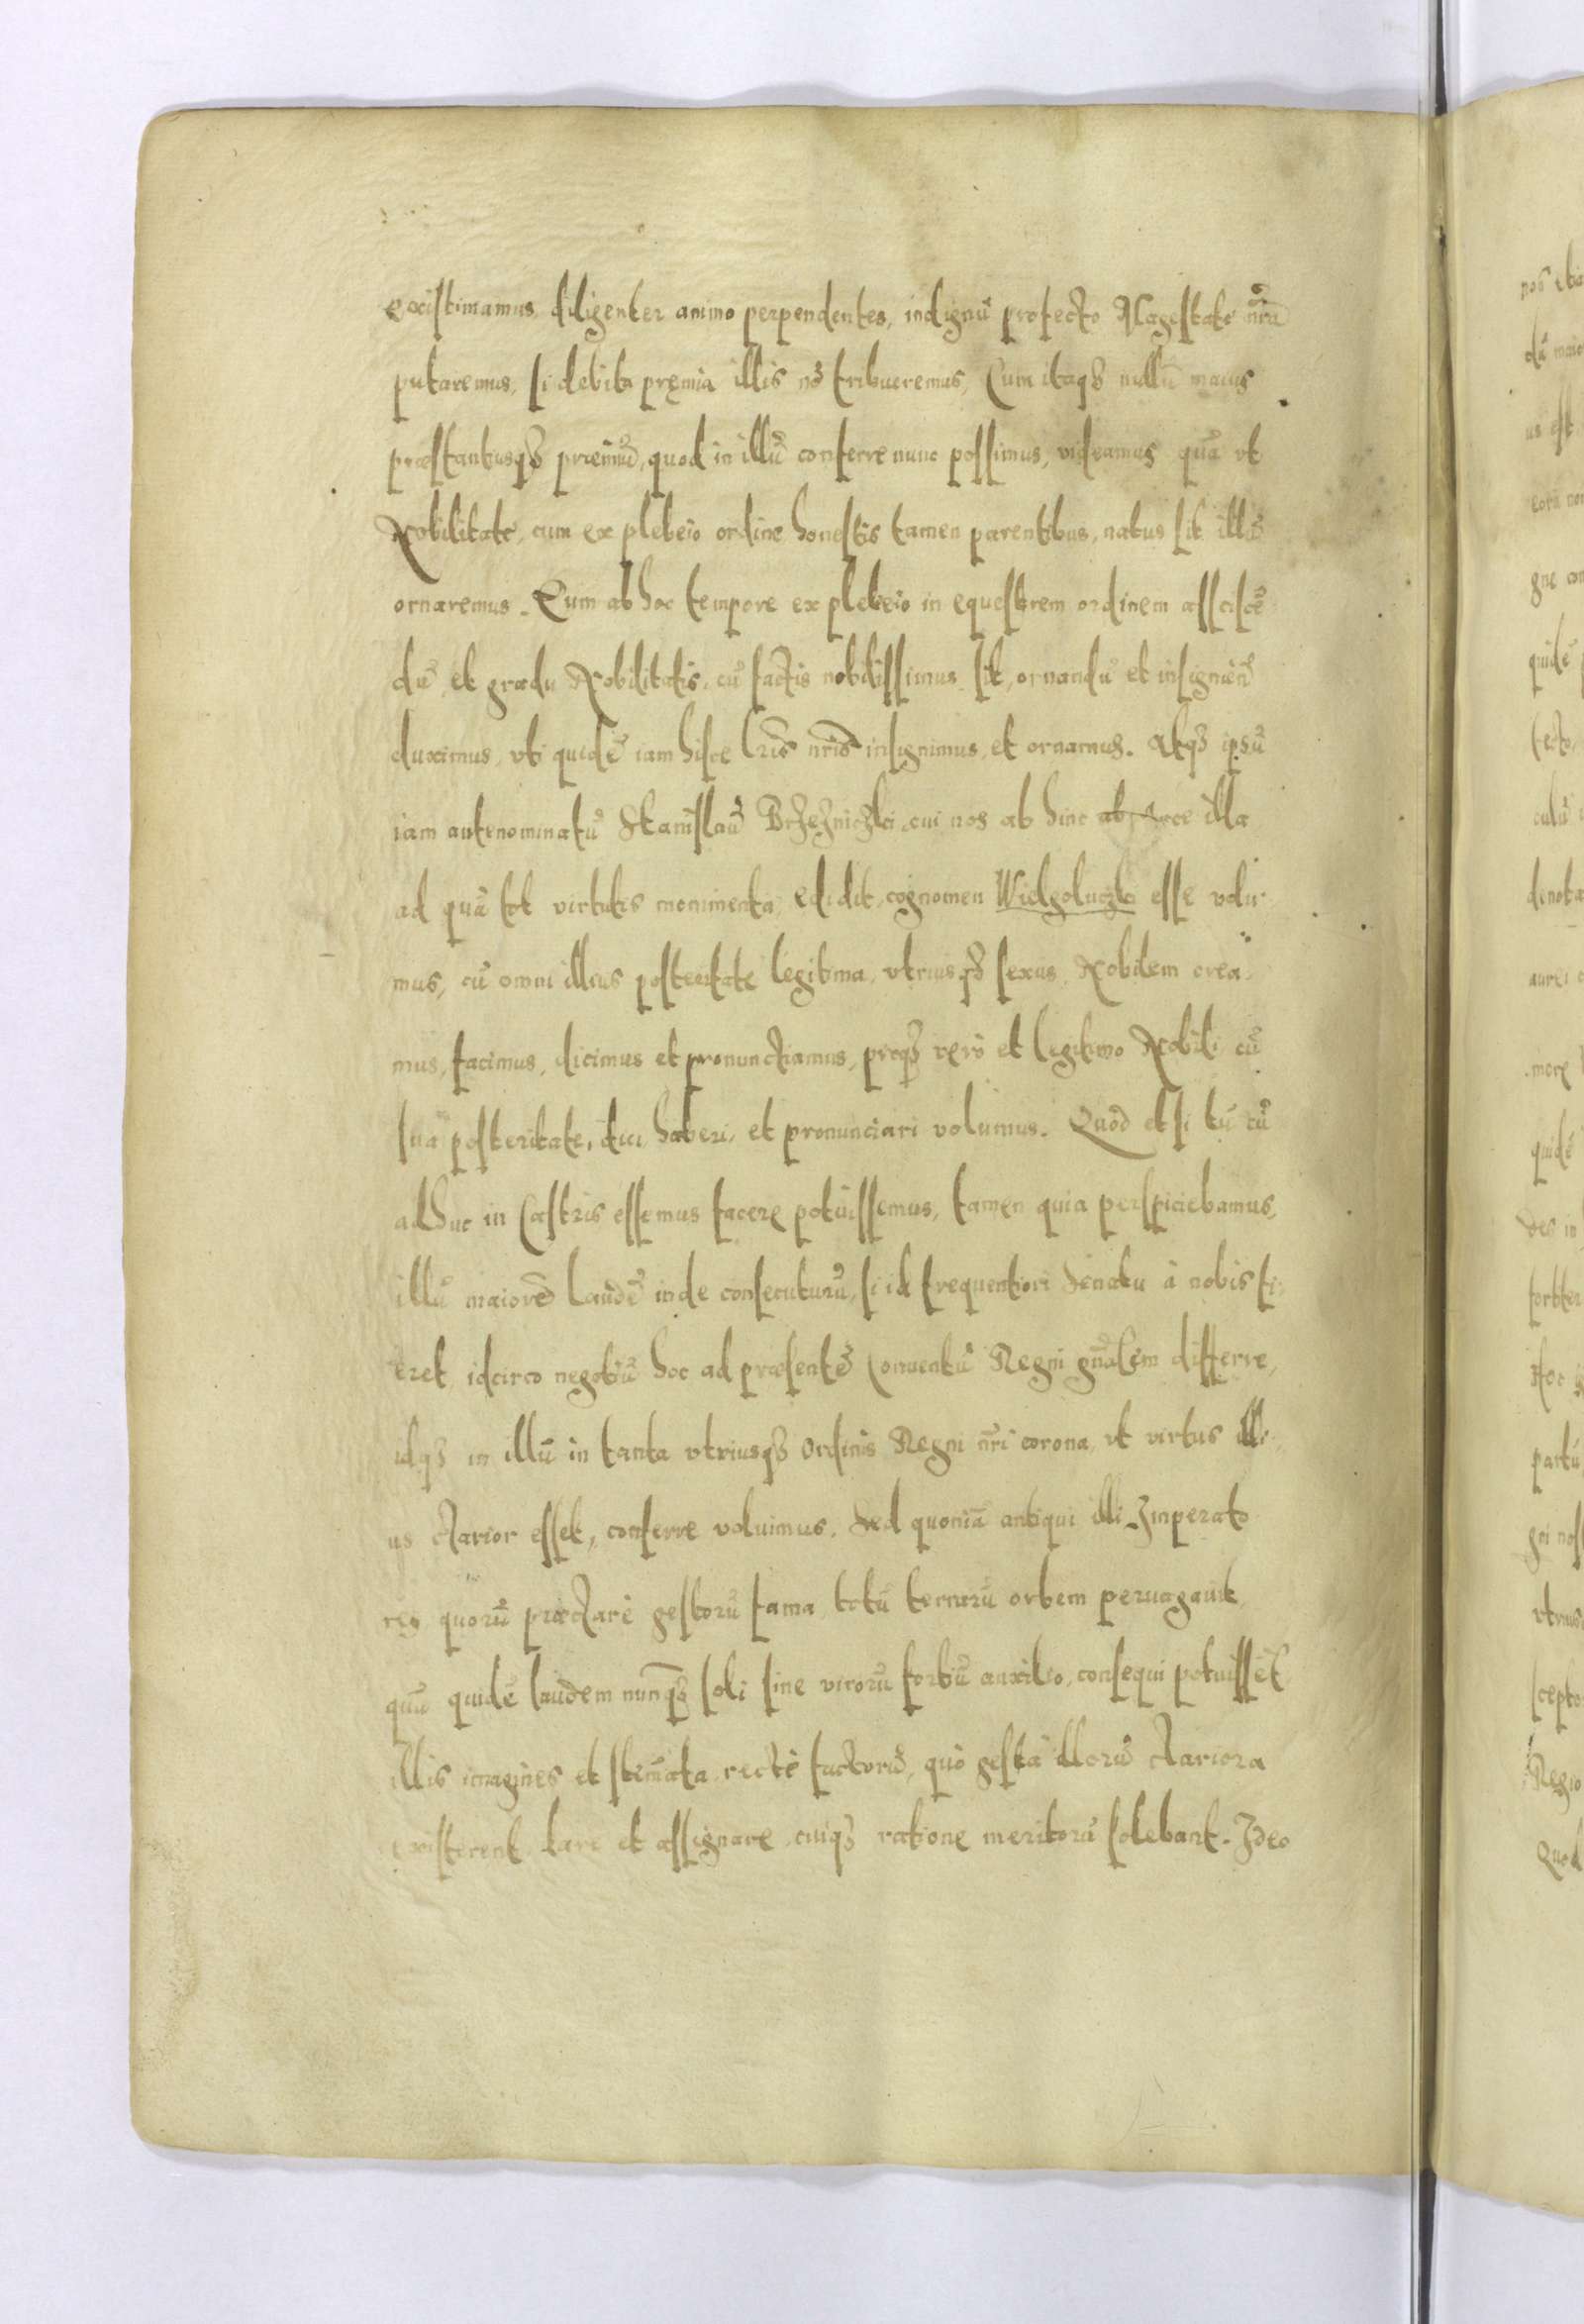 existimamus diligenter animo perpendentes, indignũ profecto Magestate nr̃a
putaremus, si debita pręmia illis nõ tribueremus, Cum itaqȝ nullũ maius
præstantiusqȝ præmiũ, quod in illũ conferre nunc possimus, videamus quã vt
Nobilitate, cum ex plebeio ordine honestis tamen parentibus, natus sit illũ
ornaremus. Eum ab hoc tempore ex plebeio in equestrem ordinem assciscẽ
dũ, et gradu Nobilitatis, cũ factis nobilissimus sit, ornandũ et insigniẽd
duximus, vti quidẽ iam hisce lr̃is nr̃is insignimus, et ornamus. Atqȝ ipsũ
iam antenominatũ Stanislaũ Brzezniczki cui nos ab hinc ab Arce illa
ad quã tot virtutis monimenta edidit, cognomen Wielgoluczki esse volu-
mus, cũ omni illius posteritate legitima, vtriusqȝ sexus, Nobilem crea-
mus, facimus, dicimus et pronunctiamus, proqȝ vero et legitimo Nobili cũ
sua posteritate, dici haberi, et pronunciari volumus. Quod etsi tũ cũ
adhuc in Castris essemus facere potuissemus, tamen quia perspiciebamus,
illũ maiorẽ laudẽ inde consecuturũ, si id frequentiori Senatu à nobis fi-
eret idcirco negotiũ hoc ad præsentẽ Conuentũ Regni gñalem differre,
idqȝ in illũ in tanta vtriusqȝ Ordinis Regni nr̃i corona, vt virtus illi-
us clarior esset, conferre voluimus. Sed quoniã antiqui illi Imperato
res quorũ præclarè gestorũ fama totũ terrarũ orbem peruagauit,
quã quidẽ laudem nunqȝ soli sine virorũ fortiũ auxilio, consequi potuissẽt
illis imagines et stem̃ata rectè factorũ, quò gesta illorũ clariora
existerent dare et assignare cuiqȝ ratione meritorũ solebant. Ideo